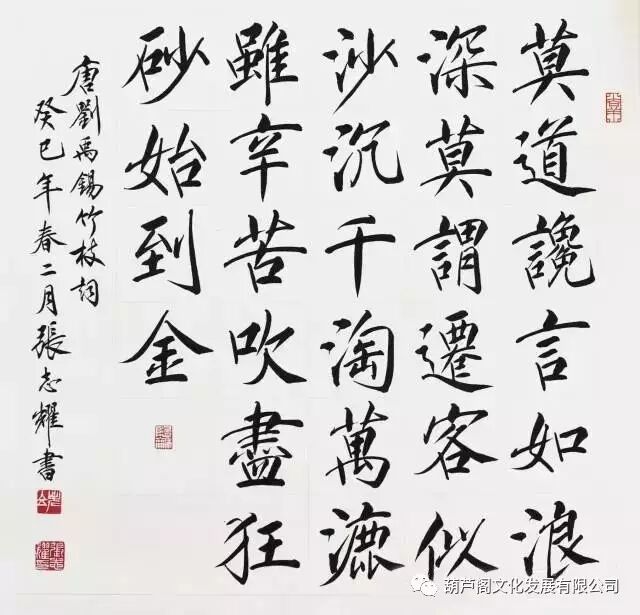 莫道讒言如浪
深莫謂遷客似
沙沉千淘萬漉
雖辛苦吹盡狂
砂始到金
唐劉禹錫竹枝詞
癸巳年春二月張志耀書
葫芦阁文化发展有限公司